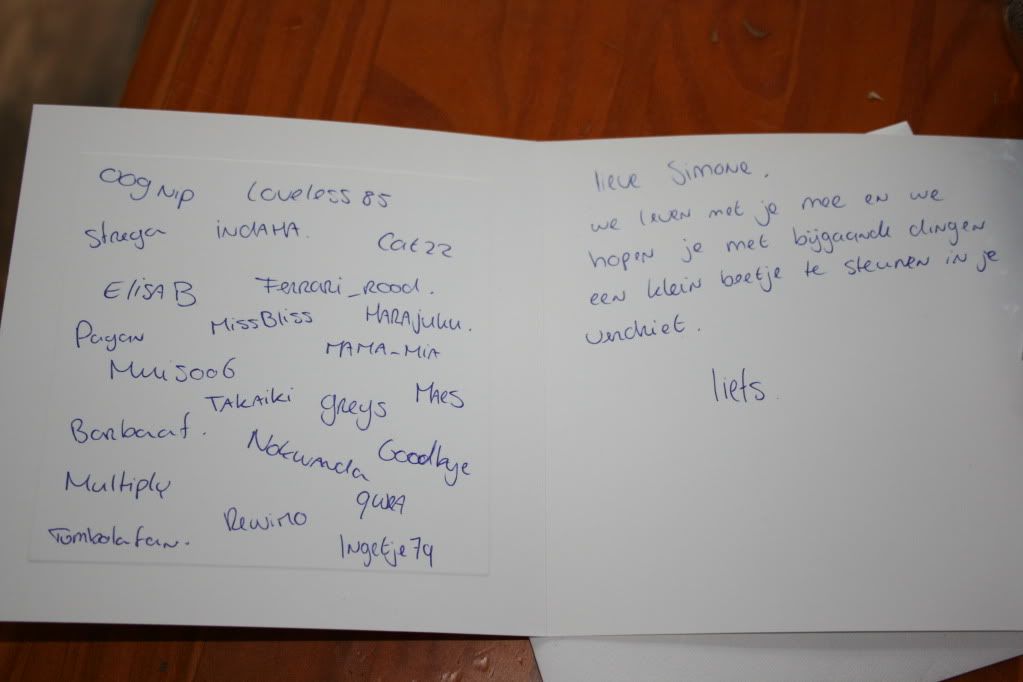 Oognip Loveless85
Strega iNDAHA. Cat22
ElisaB Ferrari_rood.
Pagan MissBliss MARAjuku.
MAMA-MiA
Muis006
TAKAiKi greys MAES
Barbaaf.
Nokwanda Goodbye
Multiply
qwRA
Rewimo
Tombolafan. Ingetje79
lieve Simone.
we leven met je mee en we
hopen je met bijgaande dingen
een klein beetje te steunen in je
verdriet.
liefs.